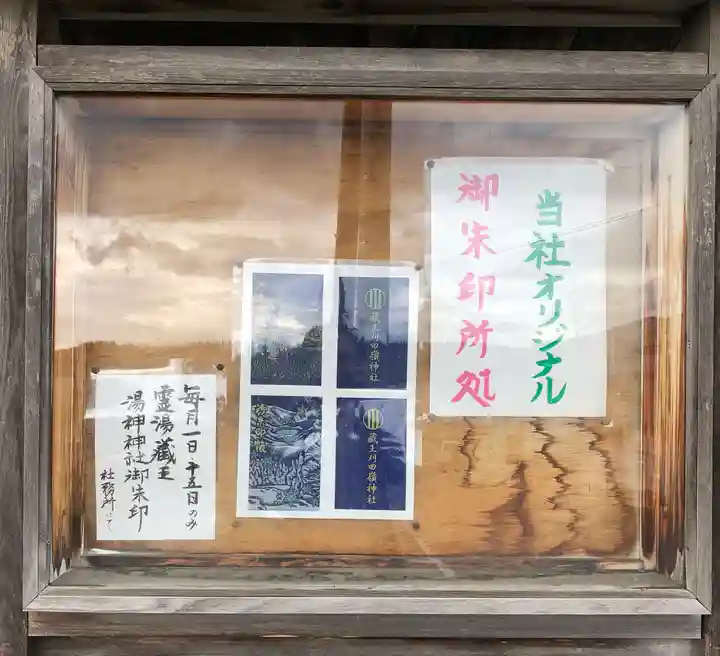 当社オリジナル
御朱印所処
蔵王刈田嶺神社
御朱印帳
蔵王刈田嶺神社
毎月一日・十五日のみ
霊湯蔵王
湯神神社御朱印
社務所にて